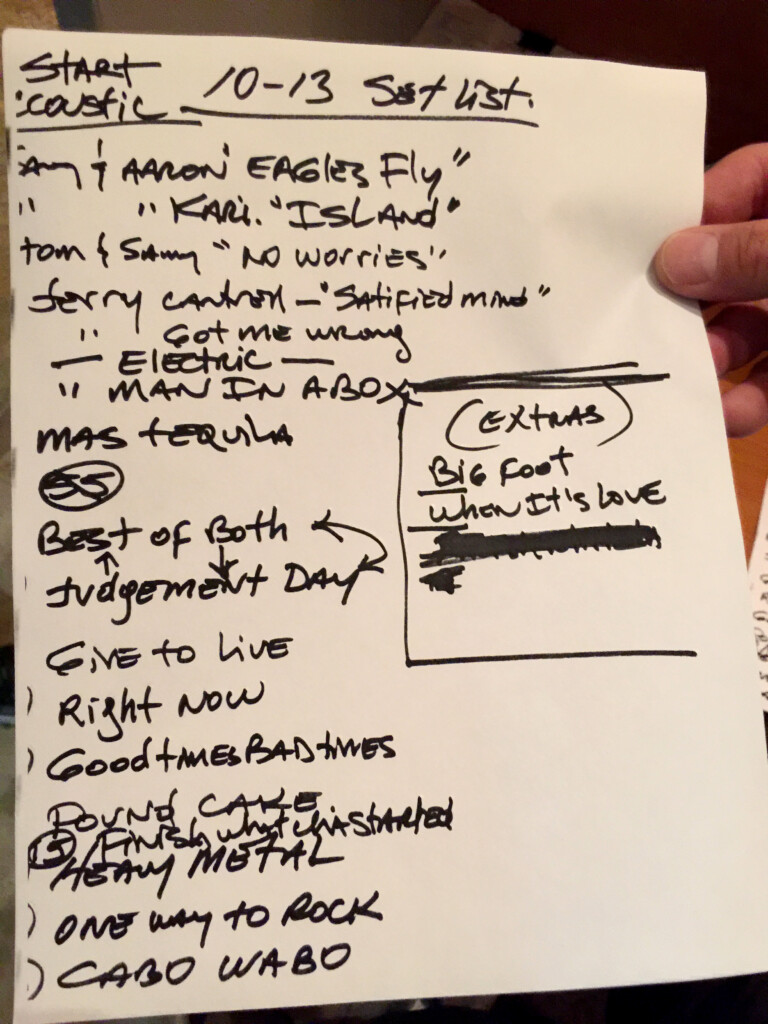 START
coustic
10-13 Set List.
Amy & AARON' EAGLES Fly"
" " KARI. "ISLAND"
tom & SAmy "NO WORRIES"
Jerry CANtREll - "SAtIfIED MIND"
" Got ME WRONG
— ElEctRic —
" MAN IN A BOX
MAS tEQUILA
(EXtRAS)
55
BIG FOOt
WHEN It'S LOVE
BEST of Both
JUdgEMENt DAY
GIVE to LIVE
) Right NOW
) GOOdtIMESBADtIMES
POUND CAKE
FINISH WhAt YA StARtED
HEAVY MEtAL
) ONE WAY to ROCK
) CABO WABO